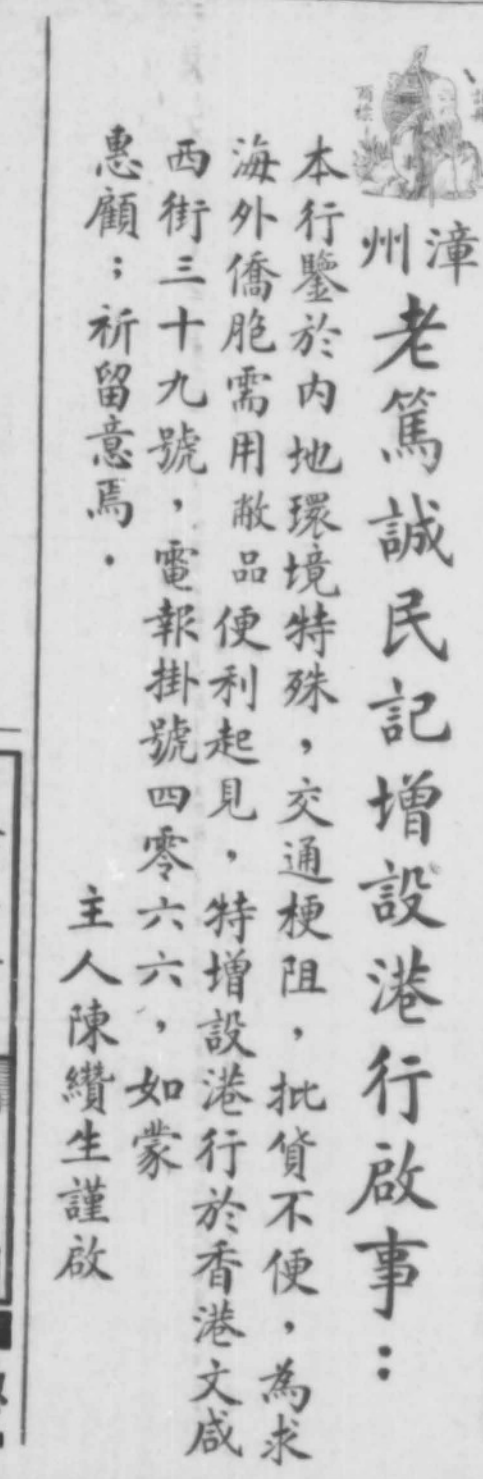 漳州老篤誠民記增設港行啟事：
本行鑒於內地環境特殊，交通梗阻，批貨不便，為求
海外僑胞需用敝品便利起見，特增設港行於香港文咸
西街三十九號，電報掛號四零六六，如蒙
惠顧；祈留意焉．
主人陳纘生謹啟